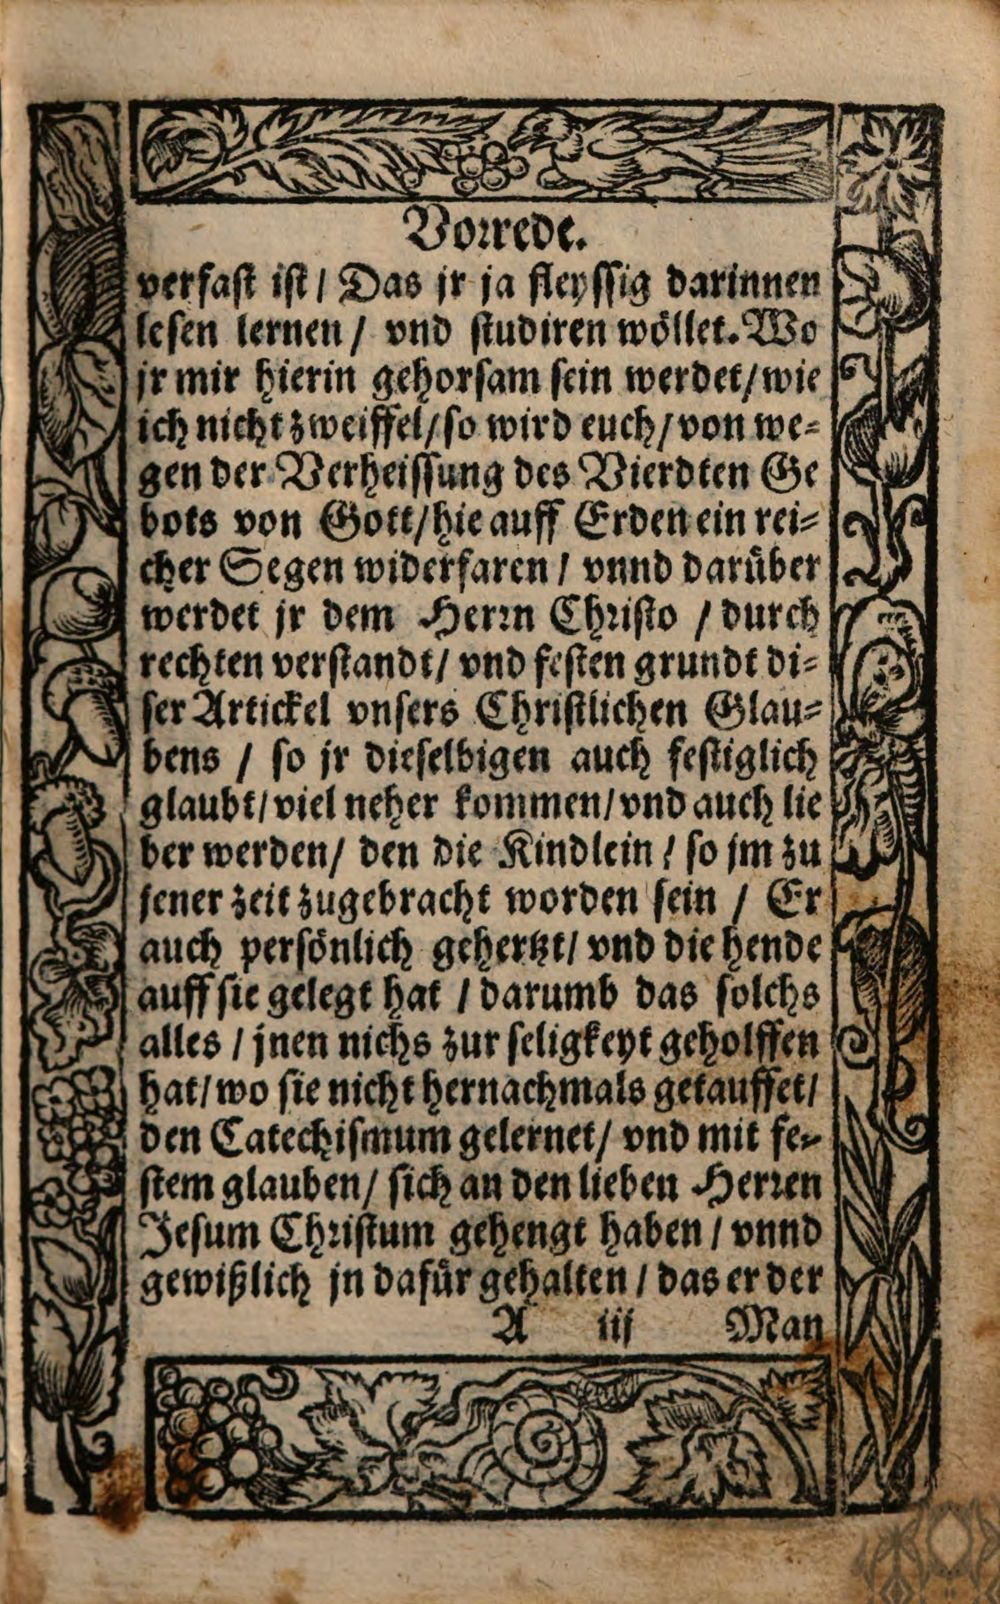 Vorrede.
verfast ist / Das jr ja fleyssig darinnen
lesen lernen / vnd studiren wöllet. Wo
jr mir hierin gehorsam sein werdet / wie
ich nicht zweiffel / so wird euch / von we=
gen der Verheissung des Vierdten Ge
bots von Gott / hie auff Erden ein rei=
cher Segen widerfaren / vnnd darüber
werdet jr dem Herrn Christo / durch
rechten verstandt / vnd festen grundt di=
ser Artickel vnsers Christlichen Glau=
bens / so jr dieselbigen auch festiglich
glaubt / viel neher kommen / vnd auch lie
ber werden / den die Kindlein / so jm zu
jener zeit zugebracht worden sein / Er
auch persönlich gehertzt / vnd die hende
auff sie gelegt hat / darumb das solchs
alles / jnen nichs zur seligkeyt geholffen
hat / wo sie nicht hernachmals getauffet /
den Catechismum gelernet / vnd mit fe=
stem glauben / sich an den lieben Herren
Jesum Christum gehengt haben / vnnd
gewißlich jn dafür gehalten / das er der
A iij Man